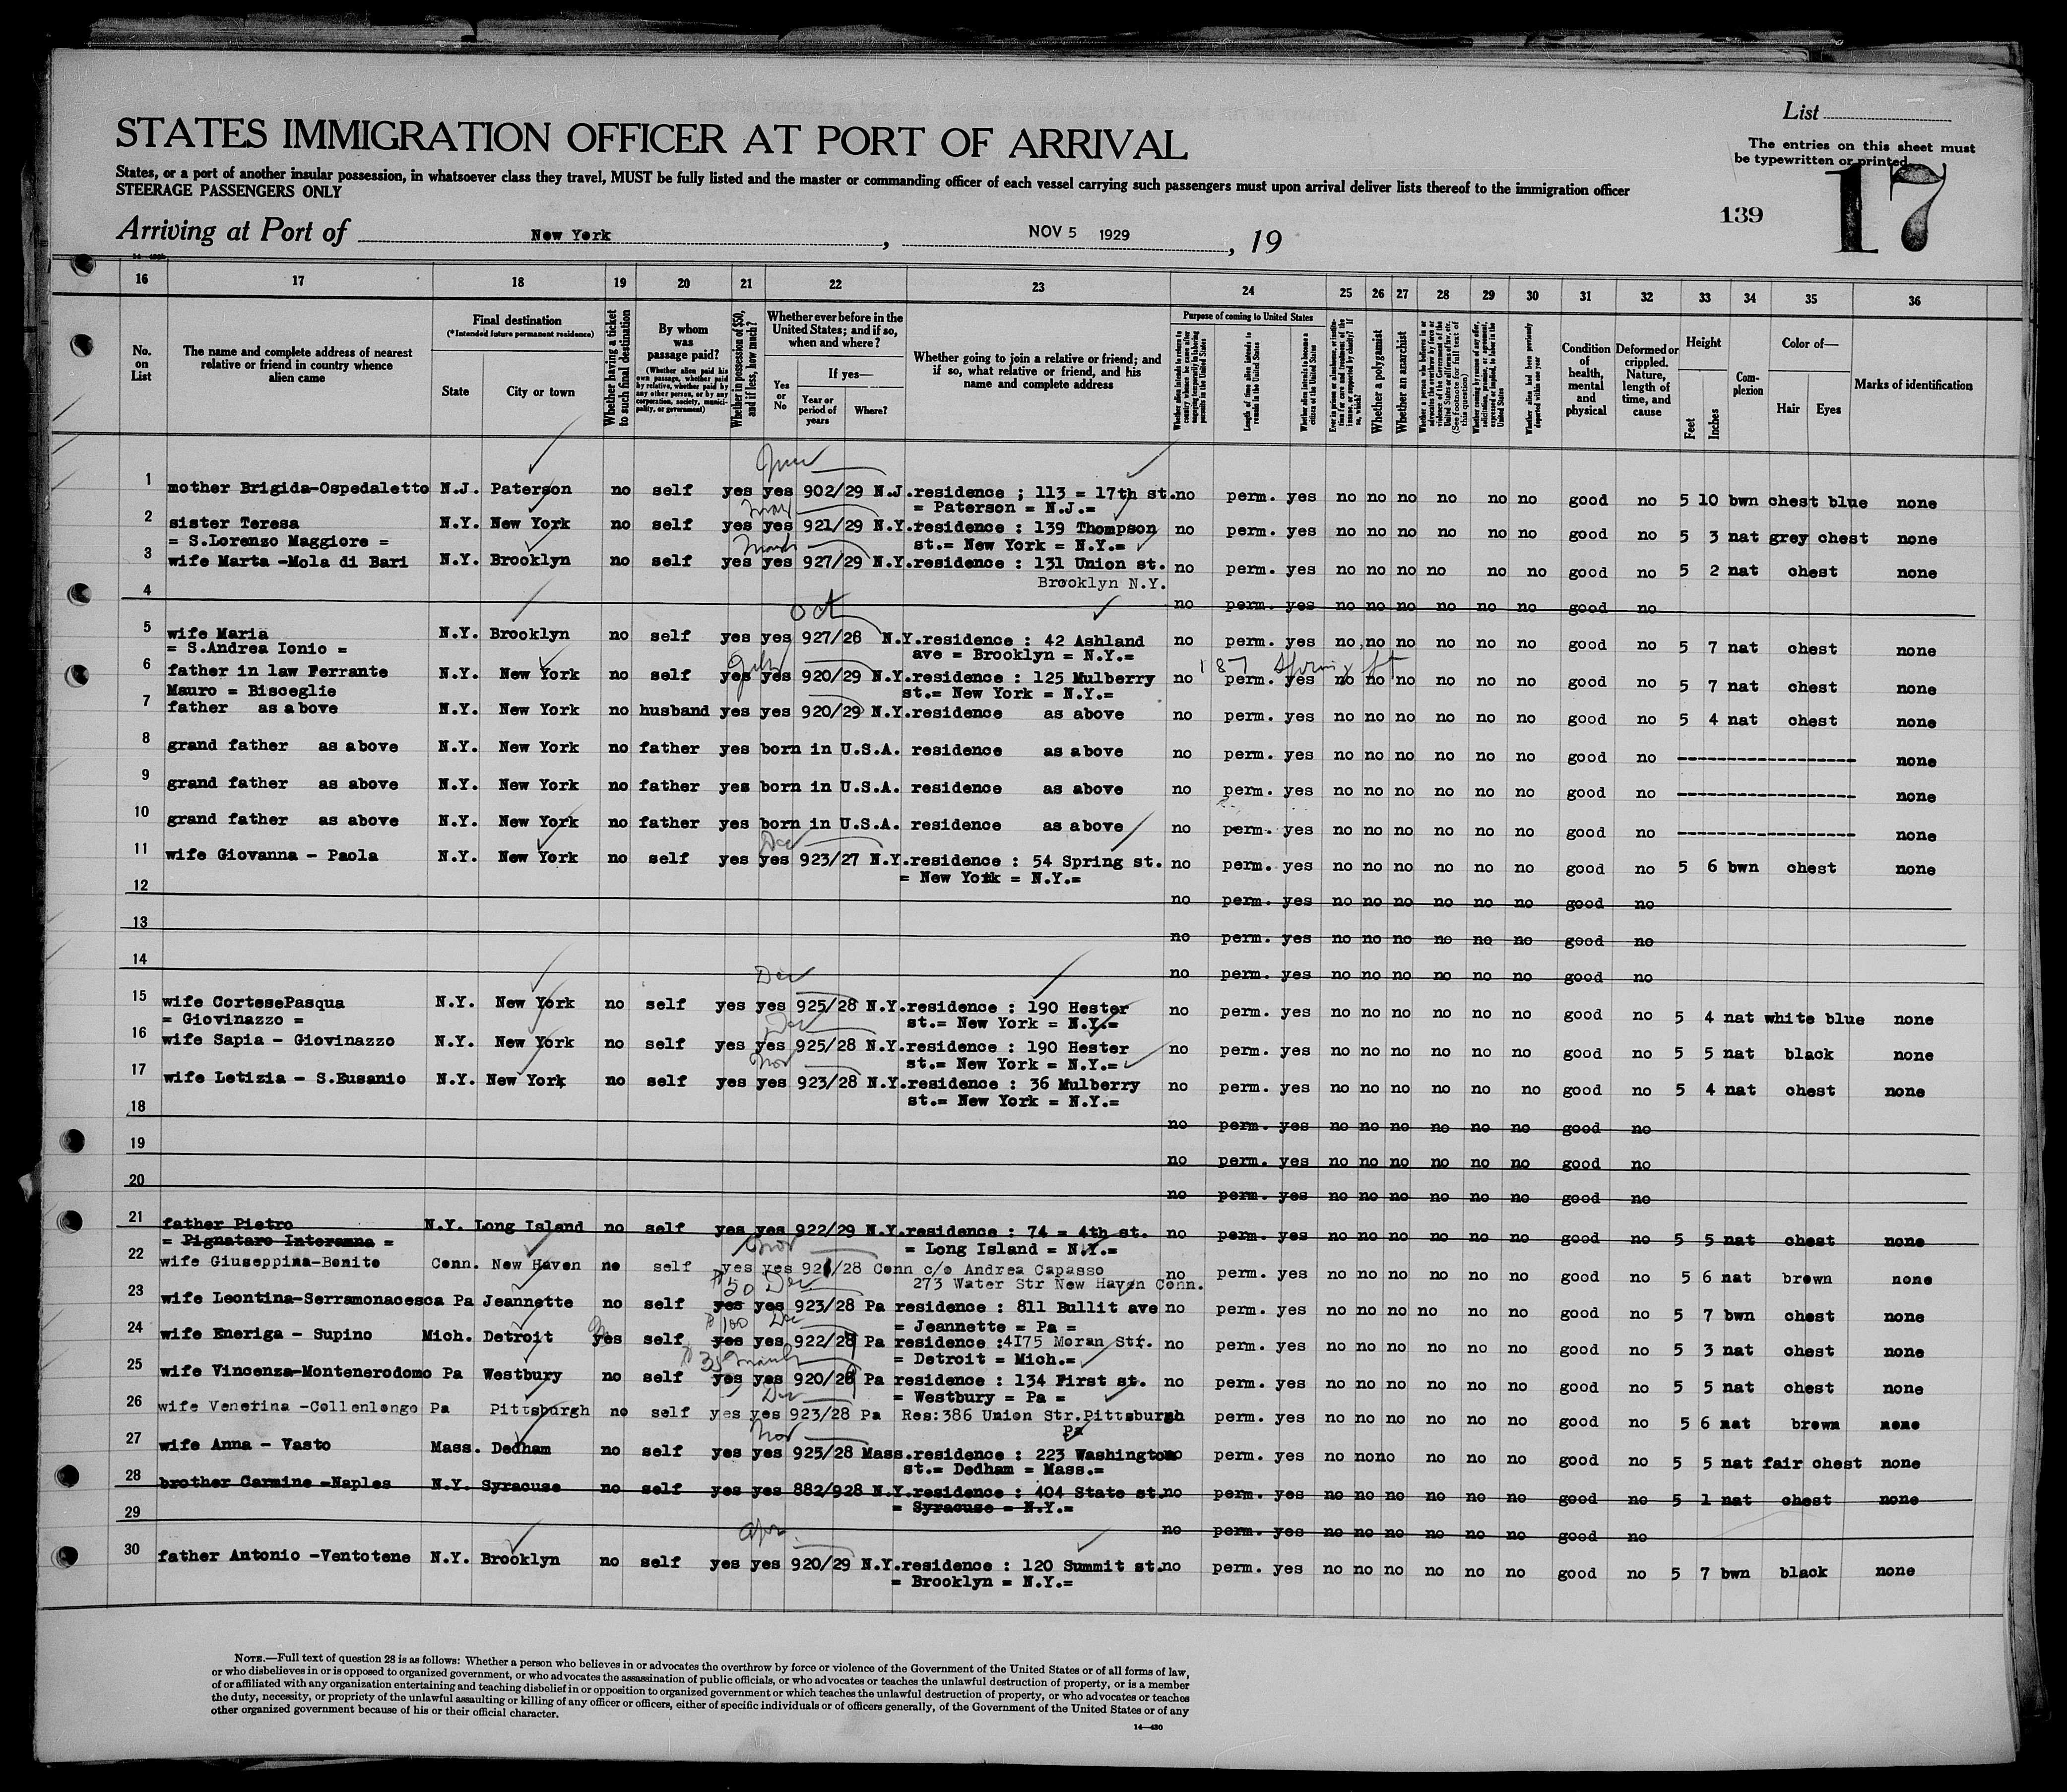 List
STATES IMMIGRATION OFFICER AT PORT OF ARRIVAL
The entries on this sheet must
be typewritten or printed
States, or a port of another insular possession, in whatsoever class they travel, MUST be fully listed and the master or commanding officer of each vessel carrying such passengers must upon arrival deliver lists thereof to the immigration officer
STEERAGE PASSENGERS ONLY
139 17
Arriving at Port of New York, NOV 5 1929, 19
16 17 18 19 20 21 22 23 24 25 26 27 28 29 30 31 32 33 34 35 36
No. on List
The name and complete address of nearest relative or friend in country whence alien came
Final destination
(*Intended future permanent residence)
State
City or town
Whether having a ticket to such final destination
By whom was passage paid?
(Whether alien paid his own passage, whether paid by relative, whether paid by any other person, or by any corporation, society, municipality, or government)
Whether in possession of $50, and if less, how much?
Whether ever before in the United States; and if so, when and where?
Yes or No
If yes—
Year or period of years
Where?
Whether going to join a relative or friend; and if so, what relative or friend, and his name and complete address
Purpose of coming to United States
Length of time alien intends to remain in the United States
Whether alien intends to become a citizen of the United States
Whether a polygamist
Whether an anarchist
Condition of health, mental and physical
Deformed or crippled. Nature, length of time, and cause
Height
Feet
Inches
Complexion
Color of—
Hair
Eyes
Marks of identification
June
1 mother Brigida-Ospedaletto N.J. Paterson no self yes yes 902/29 N.J. residence ; 113 = 17th st. no perm. yes no no no no no no good no 5 10 bwn chest blue none
= Paterson = N.J.=
2 sister Teresa N.Y. New York no self yes yes 921/29 N.Y. residence : 139 Thompson no perm. yes no no no no no no good no 5 3 nat grey chest none
= S.Lorenzo Maggiore = st.= New York = N.Y.=
March
3 wife Marta -Mola di Bari N.Y. Brooklyn no self yes yes 927/29 N.Y. residence : 131 Union st. no perm. yes no no no no no no good no 5 2 nat chest none
Brooklyn N.Y.
4 no perm. yes no no no no no no good no
Oct
5 wife Maria N.Y. Brooklyn no self yes yes 927/28 N.Y. residence : 42 Ashland no perm. yes no no no no no no good no 5 7 nat chest none
= S.Andrea Ionio = ave = Brooklyn = N.Y.=
July 187 Spring St
6 father in law Ferrante N.Y. New York no self yes yes 920/29 N.Y. residence : 125 Mulberry no perm. yes no no no no no no good no 5 7 nat chest none
Mauro = Bisceglie st.= New York = N.Y.=
7 father as above N.Y. New York no husband yes yes 920/29 N.Y. residence as above no perm. yes no no no no no no good no 5 4 nat chest none
8 grand father as above N.Y. New York no father yes born in U.S.A. residence as above no perm. yes no no no no no no good no ------------------- none
9 grand father as above N.Y. New York no father yes born in U.S.A. residence as above no perm. yes no no no no no no good no ------------------- none
10 grand father as above N.Y. New York no father yes born in U.S.A. residence as above no perm. yes no no no no no no good no ------------------- none
Dec
11 wife Giovanna - Paola N.Y. New York no self yes yes 923/27 N.Y. residence : 54 Spring st. no perm. yes no no no no no no good no 5 6 bwn chest none
= New York = N.Y.=
12 no perm. yes no no no no no no good no
13 no perm. yes no no no no no no good no
14 no perm. yes no no no no no no good no
Dec
15 wife CortesePasqua N.Y. New York no self yes yes 925/28 N.Y. residence : 190 Hester no perm. yes no no no no no no good no 5 4 nat white blue none
= Giovinazzo = st.= New York = N.Y.=
Dec
16 wife Sapia - Giovinazzo N.Y. New York no self yes yes 925/28 N.Y. residence : 190 Hester no perm. yes no no no no no no good no 5 5 nat black none
st.= New York = N.Y.=
Nov
17 wife Letizia - S.Eusanio N.Y. New York no self yes yes 923/28 N.Y. residence : 36 Mulberry no perm. yes no no no no no no good no 5 4 nat chest none
st.= New York = N.Y.=
18 no perm. yes no no no no no no good no
19 no perm. yes no no no no no no good no
20 no perm. yes no no no no no no good no
21 father Pietro N.Y. Long Island no self yes yes 922/29 N.Y. residence : 74 = 4th st. no perm. yes no no no no no no good no 5 5 nat chest none
= Pignataro Interamna = = Long Island = N.Y.=
Nov
22 wife Giuseppina-Bonito Conn. New Haven no self yes yes 921/28 Conn c/o Andrea Capasso no perm. yes no no no no no no good no 5 6 nat brown none
273 Water Str New Haven Conn.
$50 Dec
23 wife Leontina-Serramonacesca Pa Jeannette no self yes yes 923/28 Pa residence : 811 Bullit ave no perm. yes no no no no no no good no 5 7 bwn chest none
= Jeannette = Pa =
$100 Dec
24 wife Eneriga - Supino Mich. Detroit yes self yes yes 922/28 Pa residence :4175 Moran Str. no perm. yes no no no no no no good no 5 3 nat chest none
= Detroit = Mich.=
$35 March
25 wife Vincenza-Montenerodomo Pa Westbury no self yes yes 920/28 Pa residence : 134 First st. no perm. yes no no no no no no good no 5 5 nat chest none
= Westbury = Pa =
Dec
26 wife Venerina -Collenlongo Pa Pittsburgh no self yes yes 923/28 Pa Res:386 Union Str.Pittsburgh perm. yes no no no no no no good no 5 6 nat brown none
Pa
Nov
27 wife Anna - Vasto Mass. Dedham no self yes yes 925/28 Mass. residence : 223 Washington no perm. yes no no no no no no good no 5 5 nat fair chest none
st.= Dedham = Mass.=
28 brother Carmine -Naples N.Y. Syracuse no self yes yes 882/928 N.Y. residence : 404 State st. no perm. yes no no no no no no good no 5 1 nat chest none
= Syracuse = N.Y.=
29 no perm. yes no no no no no no good no
Apr
30 father Antonio -Ventotene N.Y. Brooklyn no self yes yes 920/29 N.Y. residence : 120 Summit st. no perm. yes no no no no no no good no 5 7 bwn black none
= Brooklyn = N.Y.=
NOTE.—Full text of question 28 is as follows: Whether a person who believes in or advocates the overthrow by force or violence of the Government of the United States or of all forms of law,
or who disbelieves in or is opposed to organized government, or who advocates the assassination of public officials, or who advocates or teaches the unlawful destruction of property, or is a member
of or affiliated with any organization entertaining and teaching disbelief in or opposition to organized government or which teaches the unlawful destruction of property, or who advocates or teaches
the duty, necessity, or propriety of the unlawful assaulting or killing of any officer or officers, either of specific individuals or of officers generally, of the Government of the United States or of any
other organized government because of his or their official character.
14—430